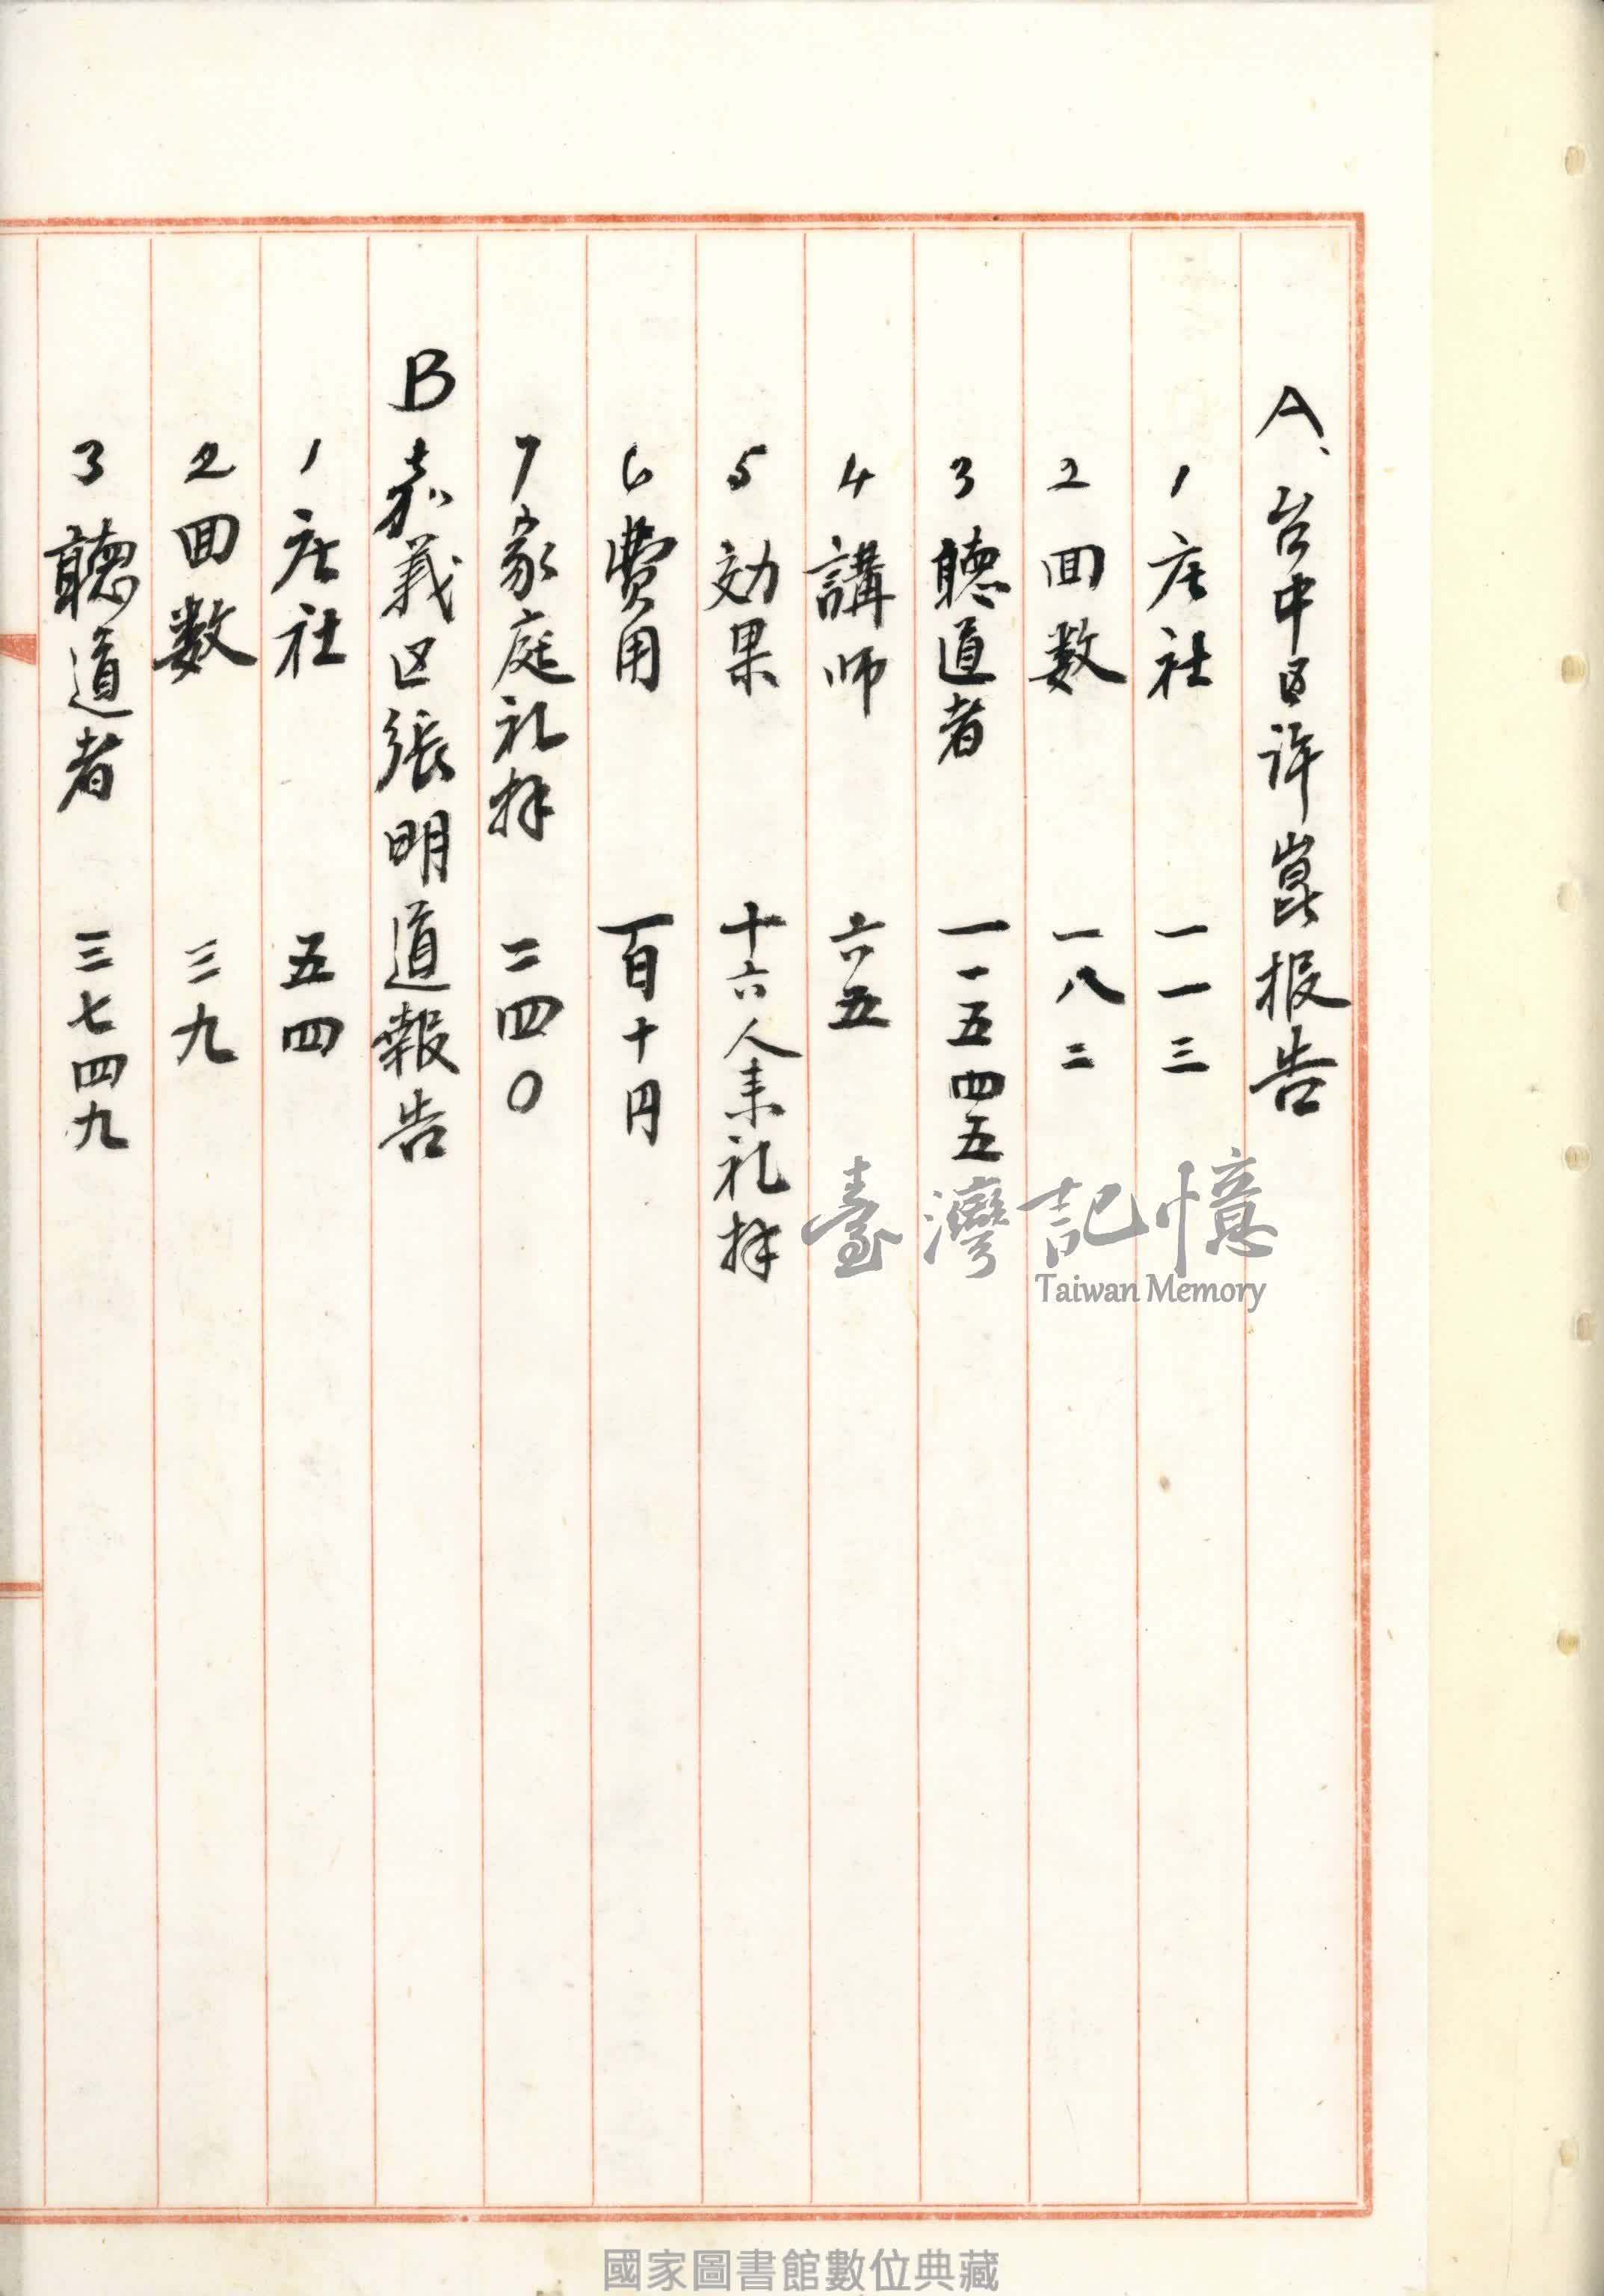 A、台中区许崑报告
1 庄社 一一三
2 回数 一八二
3 聽道者 一一五四五
4 講师 六五
5 効果 十六人来礼拜
6 費用 百十円
7 家庭礼拜 二四〇
B 嘉義区張明道報告
1 庄社 五四
2 回数 三九
3 聽道者 三七四九
臺灣記憶
Taiwan Memory
國家圖書館數位典藏